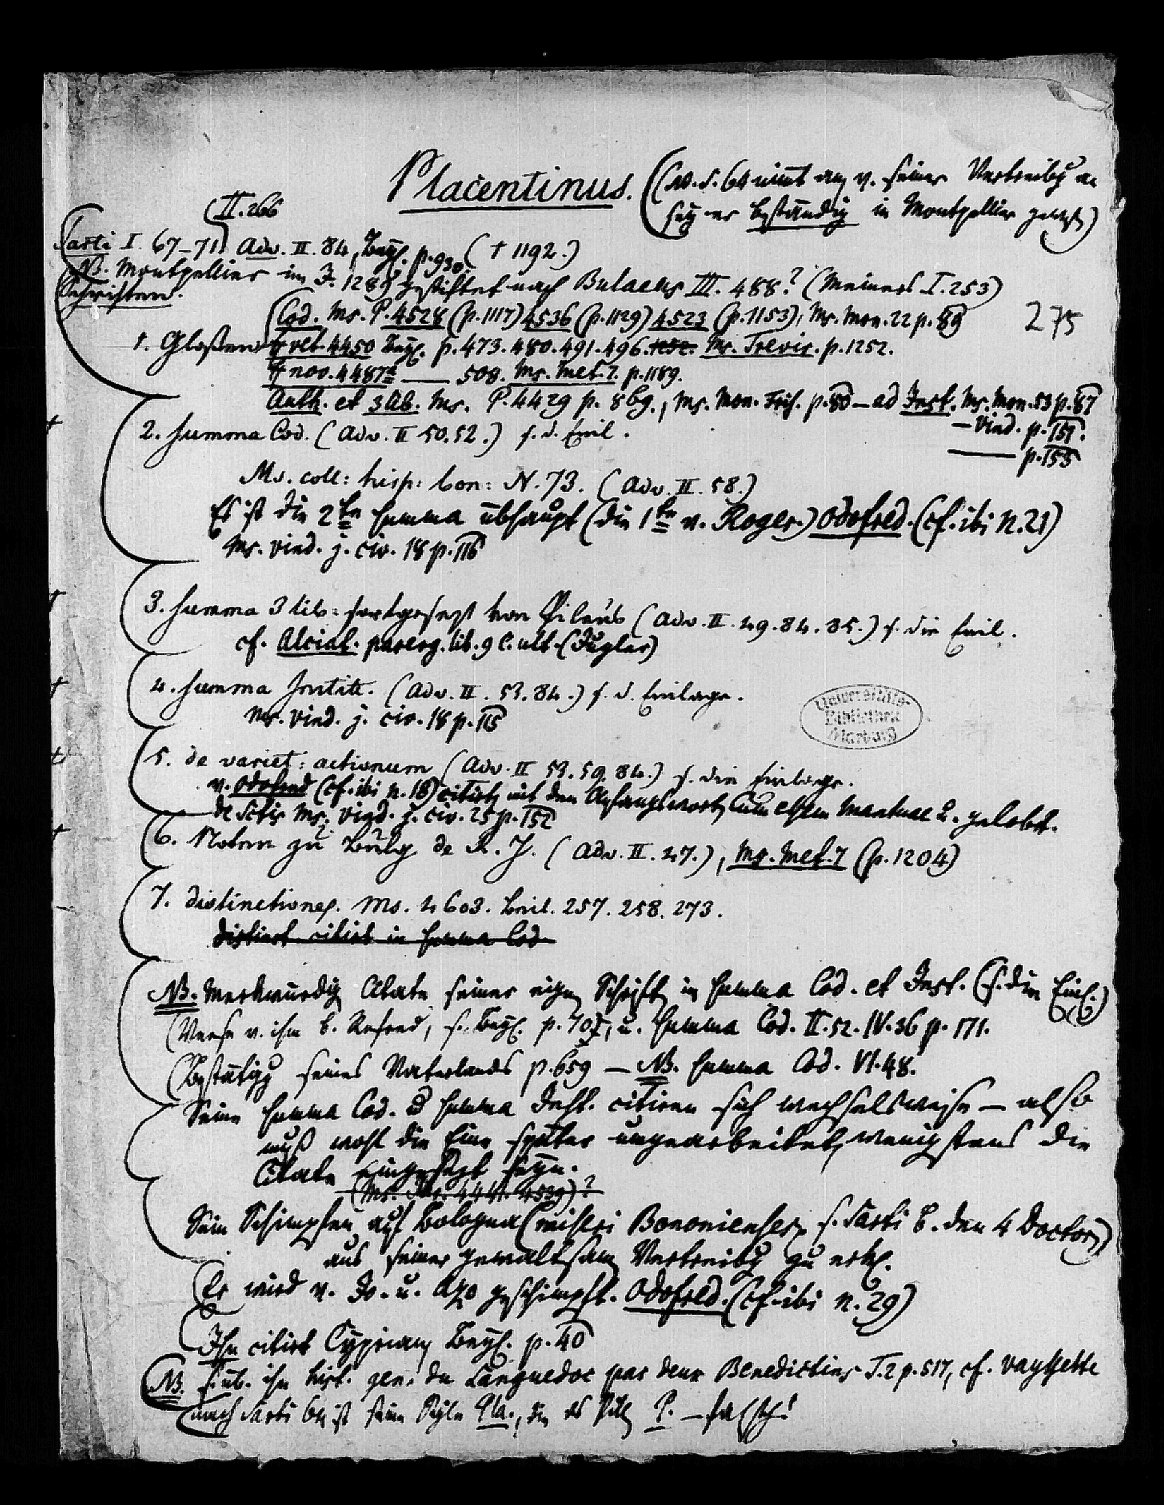 Placentinus. (Adv. S. 64 nimt an v. seiner Vertreibg an
sey er beständig in Montpellier gewes.)
(II. 266
Sarti I. 67-71) Adv. II. 84, Beyl. p. 930. († 1192.)
NB. Montpellier im J. 1289 gestiftet nach Bulaeus III. 488? (Meiners I. 253)
Schriften.
275
(Cod. Ms. P. 4528 (p. 1117) 4536 (p. 1129) 4523 (p. 1153), Ms. Mon. 22 p. 89
1. Glossen ff vet. 4450 Beyl. p. 473. 480. 491. 496. Ms. Trevir. p. 1252.
ff nov. 4487a — 508. Ms. Met. 7. p. 1189.
Auth. et 3 lib. Ms. P. 4429 p. 869., Ms. Mon. Fris. p. 80 — ad Inst. Ms. Mon. 53 p. 87
— Vind. p. 151.
— p. 153
2. Summa Cod. (Adv. II 50. 52.) s. d. Einl.
Ms. coll: hisp: bon: N. 73. (Adv. II. 58.)
Es ist die 2te Summa übhaupt (die 1te v. Roger.) Odofred. (cf. ibi n. 21)
Ms. vind. j. civ. 18 p. 116
3. Summa 3 lib: fortgesezt von Pileus (Adv. II. 49. 84. 85.) s. die Einl.
cf. Alciat. parerg. lib. 9 C. ult. (Zugler)
4. Summa Institt. (Adv. II. 53. 84.) s. d. Einlage.
Ms. vind. j. civ. 18 p. 115
Universitäts-
Bibliothek
Marburg
5. de variet: actionum (Adv. II 53. 59. 84.) s. die Einlage.
v. Odofred (cf. ibi n. 18) citirt mit den Anfangsworten cum essem Mantuae u. gelobt.
Ms. vind. j. civ. 25 p. 152
6. Noten zu Bulg. de R. J. (Adv. II. 47.), Ms. Met. 7 (p. 1204)
7. distinctiones. Ms. 4603. Beil. 257. 258. 273.
Distinct. citirt in Summa Cod
NB. Merkwürdig Citate seiner eign Schrift in Summa Cod. et Inst. (s. die Einl.)
(Verse v. ihm b. Rofred, s. Beyl. p. 707, u. Summa Cod. II. 52. IV. 36 p. 171.
(Bestätigg seines Vaterlands p. 659 — NB. Summa Cod. VI. 48.
Seine Summa Cod. u Summa Inst. citiren sich wechselsweise — also
muß wohl die Eine später umgearbeitet, wenigstens die
Citate eingefügt seyn.
Sein Schimpfen auf Bologna (miseri Bononienses, s. Sarti b. den 4 Doctor)
aus seiner gewaltsam Vertreibg zu erkl.
(Er wird v. Jo. u. Azo geschimpft. Odofred. (cf. ibi n. 29)
Ihn citirt Cyprian, Beyl. p. 40
NB. s. üb. ihn hist. gen. du Languedoc par deux Benedictins T. 2 p. 517, cf. Vayssette
nach Sarti 64 ist seine Sigle Pla., P. — falsch!